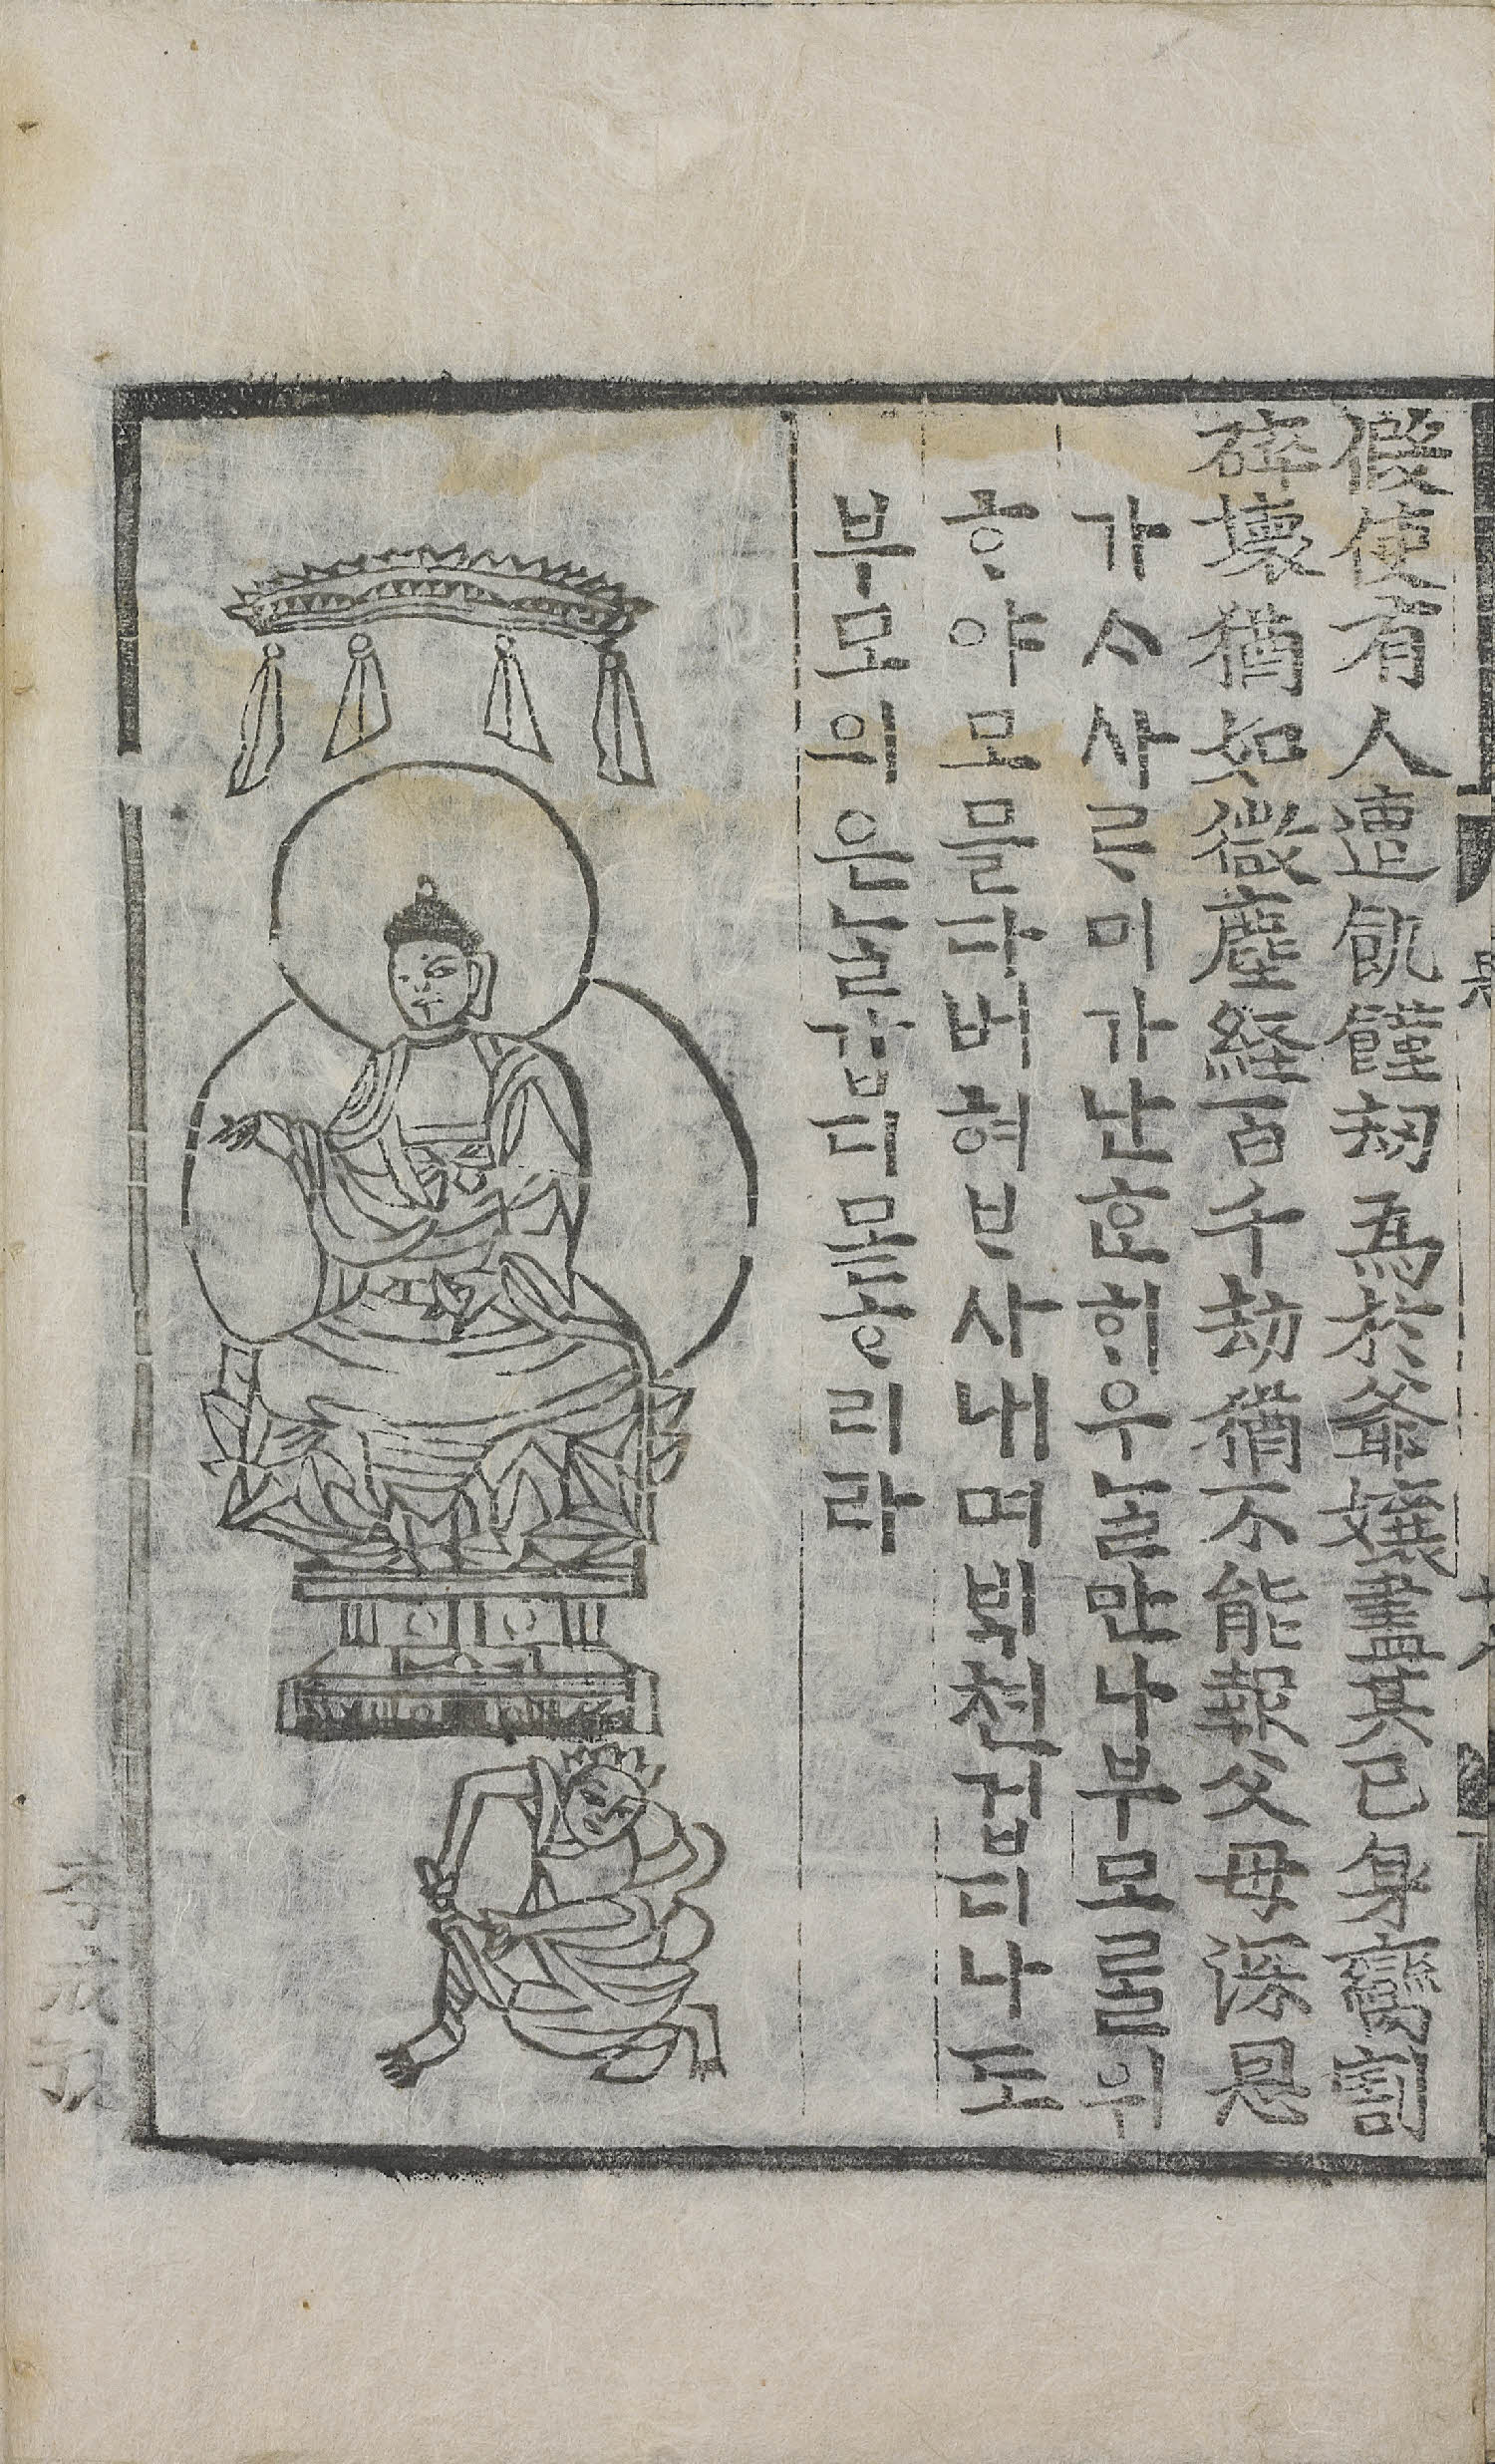 假使有人遭飢饉刼爲於爺孃盡其己身臠割
碎壞猶如微塵経百千劫猶不能報父母深恩
가ᄉᆞ사ᄅᆞ미가난ᄒᆞᆫᄒᆡ우ᄂᆞᆯ만나부모ᄅᆞᆯ위
ᄒᆞ야모믈다버혀ᄇᆞ사내며ᄇᆡᆨ쳔겁디나도
부모의은ᄂᆞᆯ갑디몯ᄒᆞ리라